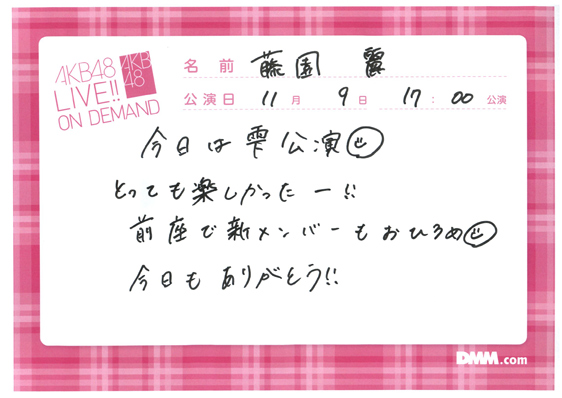 AKB48
LIVE!!
ON DEMAND
AKB
48
名前 藤園 麗
公演日 11月 9日 17:00 公演
今日は雫公演
とっても楽しかったー!!
前座で新メンバーもおひろめ
今日もありがとう!!
DMM.com